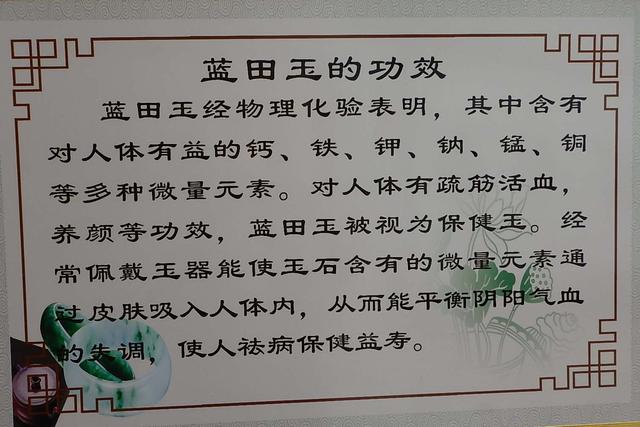 蓝田玉的功效
蓝田玉经物理化验表明，其中含有
对人体有益的钙、铁、钾、钠、锰、铜
等多种微量元素。对人体有疏筋活血，
养颜等功效，蓝田玉被视为保健玉。经
常佩戴玉器能使玉石含有的微量元素通
过皮肤吸入人体内，从而能平衡阴阳气血
的失调，使人祛病保健益寿。